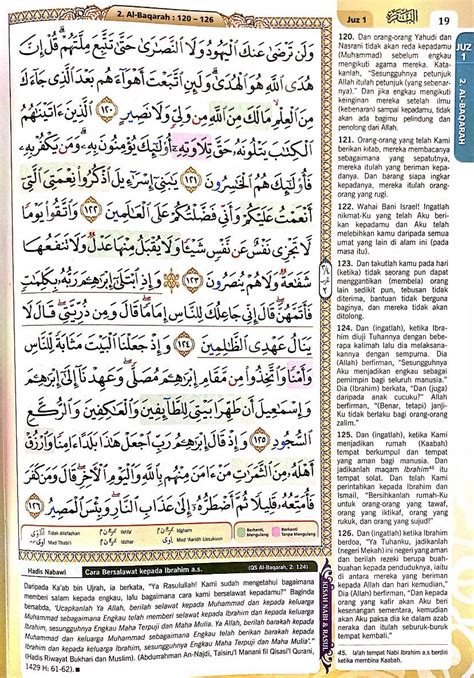 2. Al-Baqarah : 120 – 126
Juz 1
البقرة
19
وَلَن تَرْضَىٰ عَنكَ ٱلْيَهُودُ وَلَا ٱلنَّصَـٰرَىٰ حَتَّىٰ تَتَّبِعَ مِلَّتَهُمْ ۗ قُلْ إِنَّ
هُدَى ٱللَّهِ هُوَ ٱلْهُدَىٰ ۗ وَلَئِنِ ٱتَّبَعْتَ أَهْوَآءَهُم بَعْدَ ٱلَّذِى جَآءَكَ
مِنَ ٱلْعِلْمِ ۙ مَا لَكَ مِنَ ٱللَّهِ مِن وَلِىٍّ وَلَا نَصِيرٍ ١٢٠ ٱلَّذِينَ ءَاتَيْنَـٰهُمُ
ٱلْكِتَـٰبَ يَتْلُونَهُۥ حَقَّ تِلَاوَتِهِۦٓ أُو۟لَـٰٓئِكَ يُؤْمِنُونَ بِهِۦ ۗ وَمَن يَكْفُرْ بِهِۦ
فَأُو۟لَـٰٓئِكَ هُمُ ٱلْخَـٰسِرُونَ ١٢١ يَـٰبَنِىٓ إِسْرَٰٓءِيلَ ٱذْكُرُوا۟ نِعْمَتِىَ ٱلَّتِىٓ
أَنْعَمْتُ عَلَيْكُمْ وَأَنِّى فَضَّلْتُكُمْ عَلَى ٱلْعَـٰلَمِينَ ١٢٢ وَٱتَّقُوا۟ يَوْمًا
لَّا تَجْزِى نَفْسٌ عَن نَّفْسٍ شَيْـًٔا وَلَا يُقْبَلُ مِنْهَا عَدْلٌ وَلَا تَنفَعُهَا
شَفَـٰعَةٌ وَلَا هُمْ يُنصَرُونَ ١٢٣ وَإِذِ ٱبْتَلَىٰٓ إِبْرَٰهِـۧمَ رَبُّهُۥ بِكَلِمَـٰتٍ
فَأَتَمَّهُنَّ ۖ قَالَ إِنِّى جَاعِلُكَ لِلنَّاسِ إِمَامًا ۖ قَالَ وَمِن ذُرِّيَّتِى ۖ قَالَ لَا
يَنَالُ عَهْدِى ٱلظَّـٰلِمِينَ ١٢٤ وَإِذْ جَعَلْنَا ٱلْبَيْتَ مَثَابَةً لِّلنَّاسِ
وَأَمْنًا وَٱتَّخِذُوا۟ مِن مَّقَامِ إِبْرَٰهِـۧمَ مُصَلًّى ۖ وَعَهِدْنَآ إِلَىٰٓ إِبْرَٰهِـۧمَ
وَإِسْمَـٰعِيلَ أَن طَهِّرَا بَيْتِىَ لِلطَّآئِفِينَ وَٱلْعَـٰكِفِينَ وَٱلرُّكَّعِ
ٱلسُّجُودِ ١٢٥ وَإِذْ قَالَ إِبْرَٰهِـۧمُ رَبِّ ٱجْعَلْ هَـٰذَا بَلَدًا ءَامِنًا وَٱرْزُقْ
أَهْلَهُۥ مِنَ ٱلثَّمَرَٰتِ مَنْ ءَامَنَ مِنْهُم بِٱللَّهِ وَٱلْيَوْمِ ٱلْـَٔاخِرِ ۖ قَالَ وَمَن كَفَرَ
فَأُمَتِّعُهُۥ قَلِيلًا ثُمَّ أَضْطَرُّهُۥٓ إِلَىٰ عَذَابِ ٱلنَّارِ ۖ وَبِئْسَ ٱلْمَصِيرُ ١٢٦
120. Dan orang-orang Yahudi dan
Nasrani tidak akan reda kepadamu
(Muhammad) sebelum engkau
mengikuti agama mereka. Kata-
kanlah, "Sesungguhnya petunjuk
Allah itulah petunjuk (yang sebenar-
nya)." Dan jika engkau mengikuti
keinginan mereka setelah ilmu
(kebenaran) sampai kepadamu, tidak
akan ada bagimu pelindung dan
penolong dari Allah.
121. Orang-orang yang telah Kami
berikan kitab, mereka membacanya
sebagaimana yang sepatutnya,
mereka itulah yang beriman kepada-
nya. Dan barang siapa ingkar
kepadanya, mereka itulah orang-
orang yang rugi.
122. Wahai Bani Israel! Ingatlah
nikmat-Ku yang telah Aku beri-
kan kepadamu dan Aku telah
melebihkan kamu daripada semua
umat yang lain di alam ini (pada
masa itu).
123. Dan takutlah kamu pada hari
(ketika) tidak seorang pun dapat
menggantikan (membela) orang
lain sedikit pun, tebusan tidak
diterima, bantuan tidak berguna
baginya, dan mereka tidak akan
ditolong.
124. Dan (ingatlah), ketika Ibra-
him diuji Tuhannya dengan bebe-
rapa kalimah lalu dia melaksana-
kannya dengan sempurna. Dia
(Allah) berfirman, "Sesungguhnya
Aku menjadikan engkau sebagai
pemimpin bagi seluruh manusia."
Dia (Ibrahim) berkata, "Dan (juga)
daripada anak cucuku?" Allah
berfirman, "(Benar, tetapi) janji-
Ku tidak berlaku bagi orang-orang
zalim."
125. Dan (ingatlah), ketika Kami
menjadikan rumah (Kaabah)
tempat berkumpul dan tempat
yang aman bagi manusia. Dan
jadikanlah maqam Ibrahim⁴⁵ itu
tempat solat. Dan telah Kami
perintahkan kepada Ibrahim dan
Ismail, "Bersihkanlah rumah-Ku
untuk orang-orang yang tawaf,
orang yang iktikaf, orang yang
rukuk, dan orang yang sujud!"
126. Dan (ingatlah) ketika Ibrahim
berdoa, "Ya Tuhanku, jadikanlah
(negeri Mekah) ini negeri yang aman
dan berilah rezeki berupa buah-
buahan kepada penduduknya, iaitu
di antara mereka yang beriman
kepada Allah dan hari kemudian,"
Dia (Allah) berfirman, "Dan kepada
orang yang kafir akan Aku beri
kesenangan sementara, kemudian
akan Aku paksa dia ke dalam azab
neraka dan itulah seburuk-buruk
tempat kembali."
45. Ialah tempat Nabi Ibrahim a.s berdiri
ketika membina Kaabah.
JUZ
1
2. AL-BAQARAH
Tidak dilafazkan
Ikhfa'
Idgham
Mad Thabi'i
Izhar
Mad 'Aaridh Lissukuun
Berhenti,
Mengulang
Berhenti,
Tanpa Mengulang
Hadis Nabawi
Cara Berselawat kepada Ibrahim a.s.
(QS Al-Baqarah, 2: 124)
Daripada Ka'ab bin Ujrah, ia berkata, "Ya Rasulullah! Kami sudah mengetahui bagaimana
memberi salam kepada engkau, lalu bagaimana cara kami berselawat kepadamu?" Baginda
bersabda, 'Ucapkanlah Ya Allah, berilah selawat kepada Muhammad dan kepada keluarga
Muhammad sebagaimana Engkau telah memberi selawat kepada Ibrahim dan kepada keluarga
Ibrahim, sesungguhnya Engkau Maha Terpuji dan Maha Mulia. Ya Allah, berilah berkah kepada
Muhammad sebagaimana Engkau telah berikan berkah kepada Ibrahim dan kepada keluarga
Ibrahim, sesungguhnya Engkau Maha Terpuji dan Maha Mulia'."
(Hadis Riwayat Bukhari dan Muslim). (Abdurrahman An-Najdi, Taisiru'l Manani fi Qisasi'l Qurani,
1429 H: 61-62).
KISAH NABI & RASUL